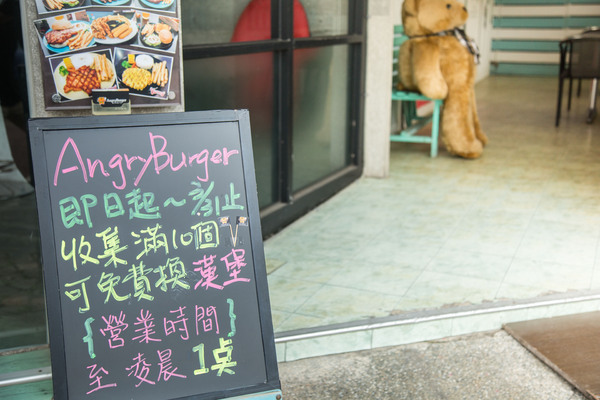 AngryBurger
即日起～3/31止
收集滿10個
可免費換漢堡
{營業時間}
至凌晨1点